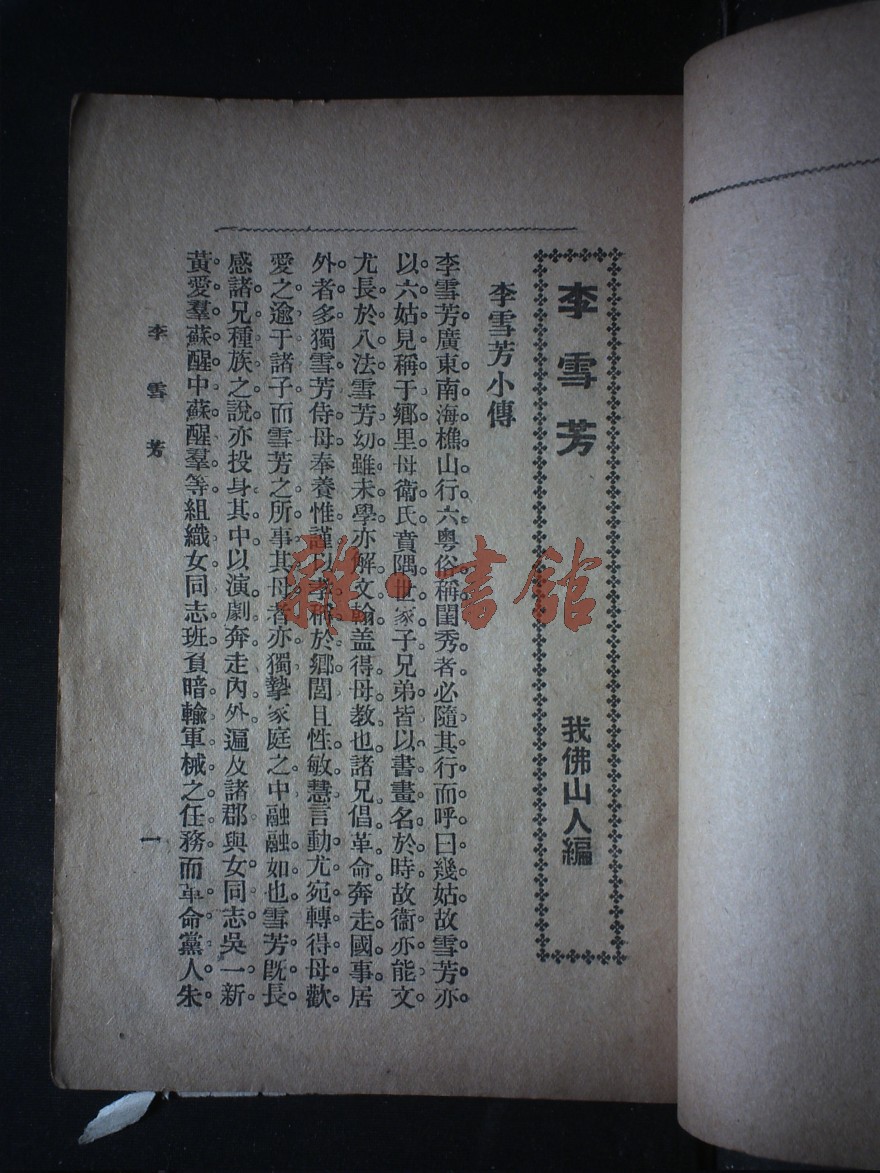 李雪芳
我佛山人編
李雪芳小傳
李雪芳廣東南海樵山行六粵俗稱閨秀者必隨其行而呼曰幾姑故雪芳亦
以六姑見稱于鄉里母衞氏賁隅世家子兄弟皆以書畫名於時故衞亦能文
尤長於八法雪芳幼雖未學亦解文翰盖得母教也諸兄倡革命奔走國事居
外者多獨雪芳侍母奉養惟謹以孝稱於鄉閭且性敏慧言動尤宛轉得母歡
愛之逾于諸子而雪芳之所事其母者亦獨摯家庭之中融融如也雪芳既長
感諸兄種族之說亦投身其中以演劇奔走內外遍及諸郡與女同志吳一新
黃愛羣蘇醒中蘇醒羣等組織女同志班負暗輸軍械之任務而革命黨人朱
李雪芳
一
雜·書館